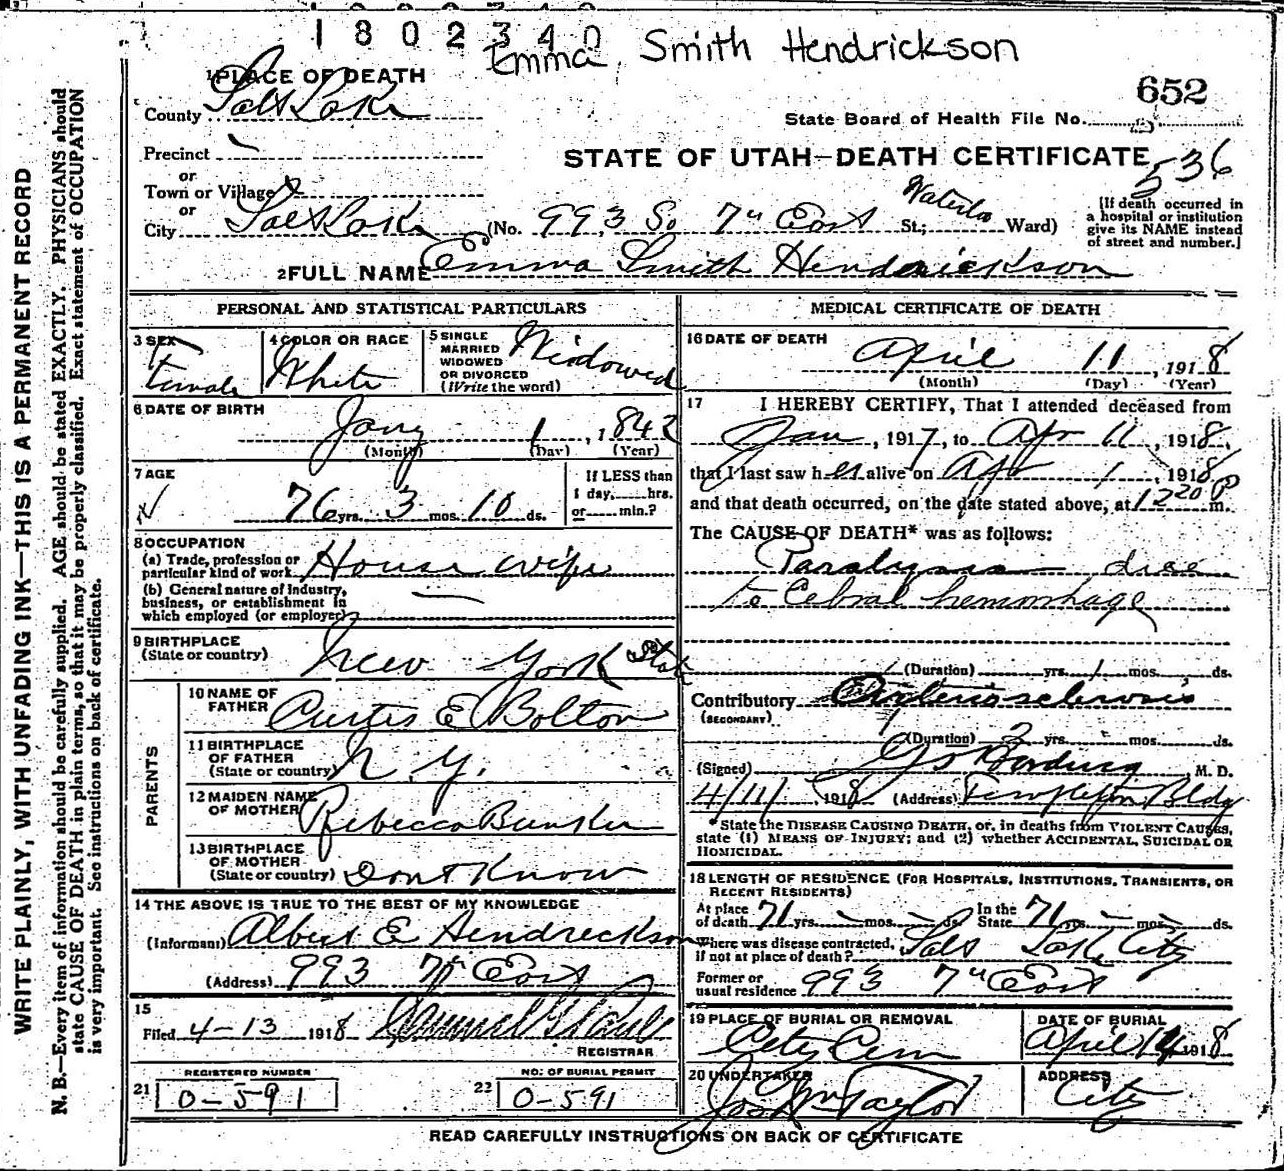 1802340
Emma Smith Hendrickson
652
1 PLACE OF DEATH
County Salt Lake
State Board of Health File No.
Precinct
or
STATE OF UTAH—DEATH CERTIFICATE
536
Town or Village
or
City Salt Lake (No. 993 So 7th East St.; Waterloo Ward)
[If death occurred in
a hospital or institution
give its NAME instead
of street and number.]
2 FULL NAME Emma Smith Hendrickson
PERSONAL AND STATISTICAL PARTICULARS
3 SEX
Female
4 COLOR OR RACE
White
5 SINGLE
MARRIED
WIDOWED
OR DIVORCED
(Write the word)
Widowed
6 DATE OF BIRTH
Jany 1, 1842
(Month) (Day) (Year)
7 AGE
76 yrs. 3 mos. 10 ds.
If LESS than
1 day, hrs.
or min.?
8 OCCUPATION
(a) Trade, profession or
particular kind of work House wife
(b) General nature of industry,
business, or establishment in
which employed (or employer)
9 BIRTHPLACE
(State or country) New York State
PARENTS
10 NAME OF
FATHER Curtis E Bolton
11 BIRTHPLACE
OF FATHER
(State or country) N. Y.
12 MAIDEN NAME
OF MOTHER Rebecca Bunker
13 BIRTHPLACE
OF MOTHER
(State or country) Dont Know
14 THE ABOVE IS TRUE TO THE BEST OF MY KNOWLEDGE
(Informant) Albert E Hendreckson
(Address) 993 7th East
15
Filed 4-13 1918
REGISTRAR
REGISTERED NUMBER
21 0-591
NO. OF BURIAL PERMIT
22 0-591
MEDICAL CERTIFICATE OF DEATH
16 DATE OF DEATH
April 11, 1918
(Month) (Day) (Year)
17 I HEREBY CERTIFY, That I attended deceased from
Jan, 1917, to Apr 11, 1918,
that I last saw her alive on Apr 1, 1918
and that death occurred, on the date stated above, at 12 20 P m.
The CAUSE OF DEATH* was as follows:
Paralysis due
to Cebral hemorrhage
(Duration) yrs. 1 mos. ds.
Contributory Arterio sclerosis
(SECONDARY)
(Duration) 2 yrs. mos. ds.
(Signed) M. D.
4/11/, 1918 (Address) Templeton Bldg
*State the DISEASE CAUSING DEATH, or, in deaths from VIOLENT CAUSES,
state (1) MEANS OF INJURY; and (2) whether ACCIDENTAL, SUICIDAL OR
HOMICIDAL.
18 LENGTH OF RESIDENCE (FOR HOSPITALS, INSTITUTIONS, TRANSIENTS, OR
RECENT RESIDENTS)
At place
of death 71 yrs. — mos. — ds.
In the
State 71 yrs. — mos. ds.
Where was disease contracted,
if not at place of death? Salt Lake City
Former or
usual residence 993 7th East
19 PLACE OF BURIAL OR REMOVAL
City Cem
DATE OF BURIAL
April 14 1918
20 UNDERTAKER
Jos Wm Taylor
ADDRESS
City
READ CAREFULLY INSTRUCTIONS ON BACK OF CERTIFICATE
WRITE PLAINLY, WITH UNFADING INK—THIS IS A PERMANENT RECORD
N. B.—Every item of information should be carefully supplied. AGE should be stated EXACTLY. PHYSICIANS should
state CAUSE OF DEATH in plain terms, so that it may be properly classified. Exact statement of OCCUPATION
is very important. See instructions on back of certificate.